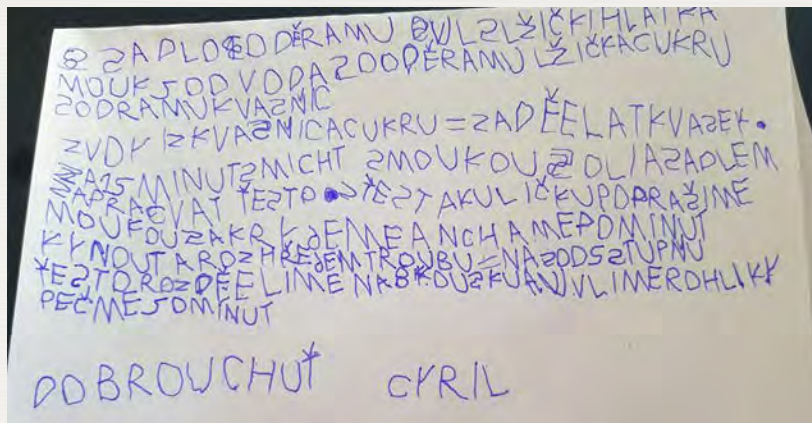 ZAPLO DĚRAMU ŽIČKIHLATKA
MOUK VODA ZOODĚRAMU LŽIČKACUKRU
ZODRAMUKVAZNIC
ZVDK IZKVAZNICACUKRU = ZADĚELATKVAZEK.
NA15 MINUTZMICHT ZMOUKOU ZOLIAZADLEM
NAPRACVAT ŤEZTO ZŤEZTAKULIČKUPOPRAŠIME
MOUKOUZAKRYJEMEANCHAMEPOMINUT
KYNOUT AROZHŘEJEMTROUBU = NAZODSZTUPNU
ŤEZTOROZDĚELIMENA KOUZKUANVLIMEROHLIKY
PEČMEJOMINUT
DOBROUCHUŤ CYRIL